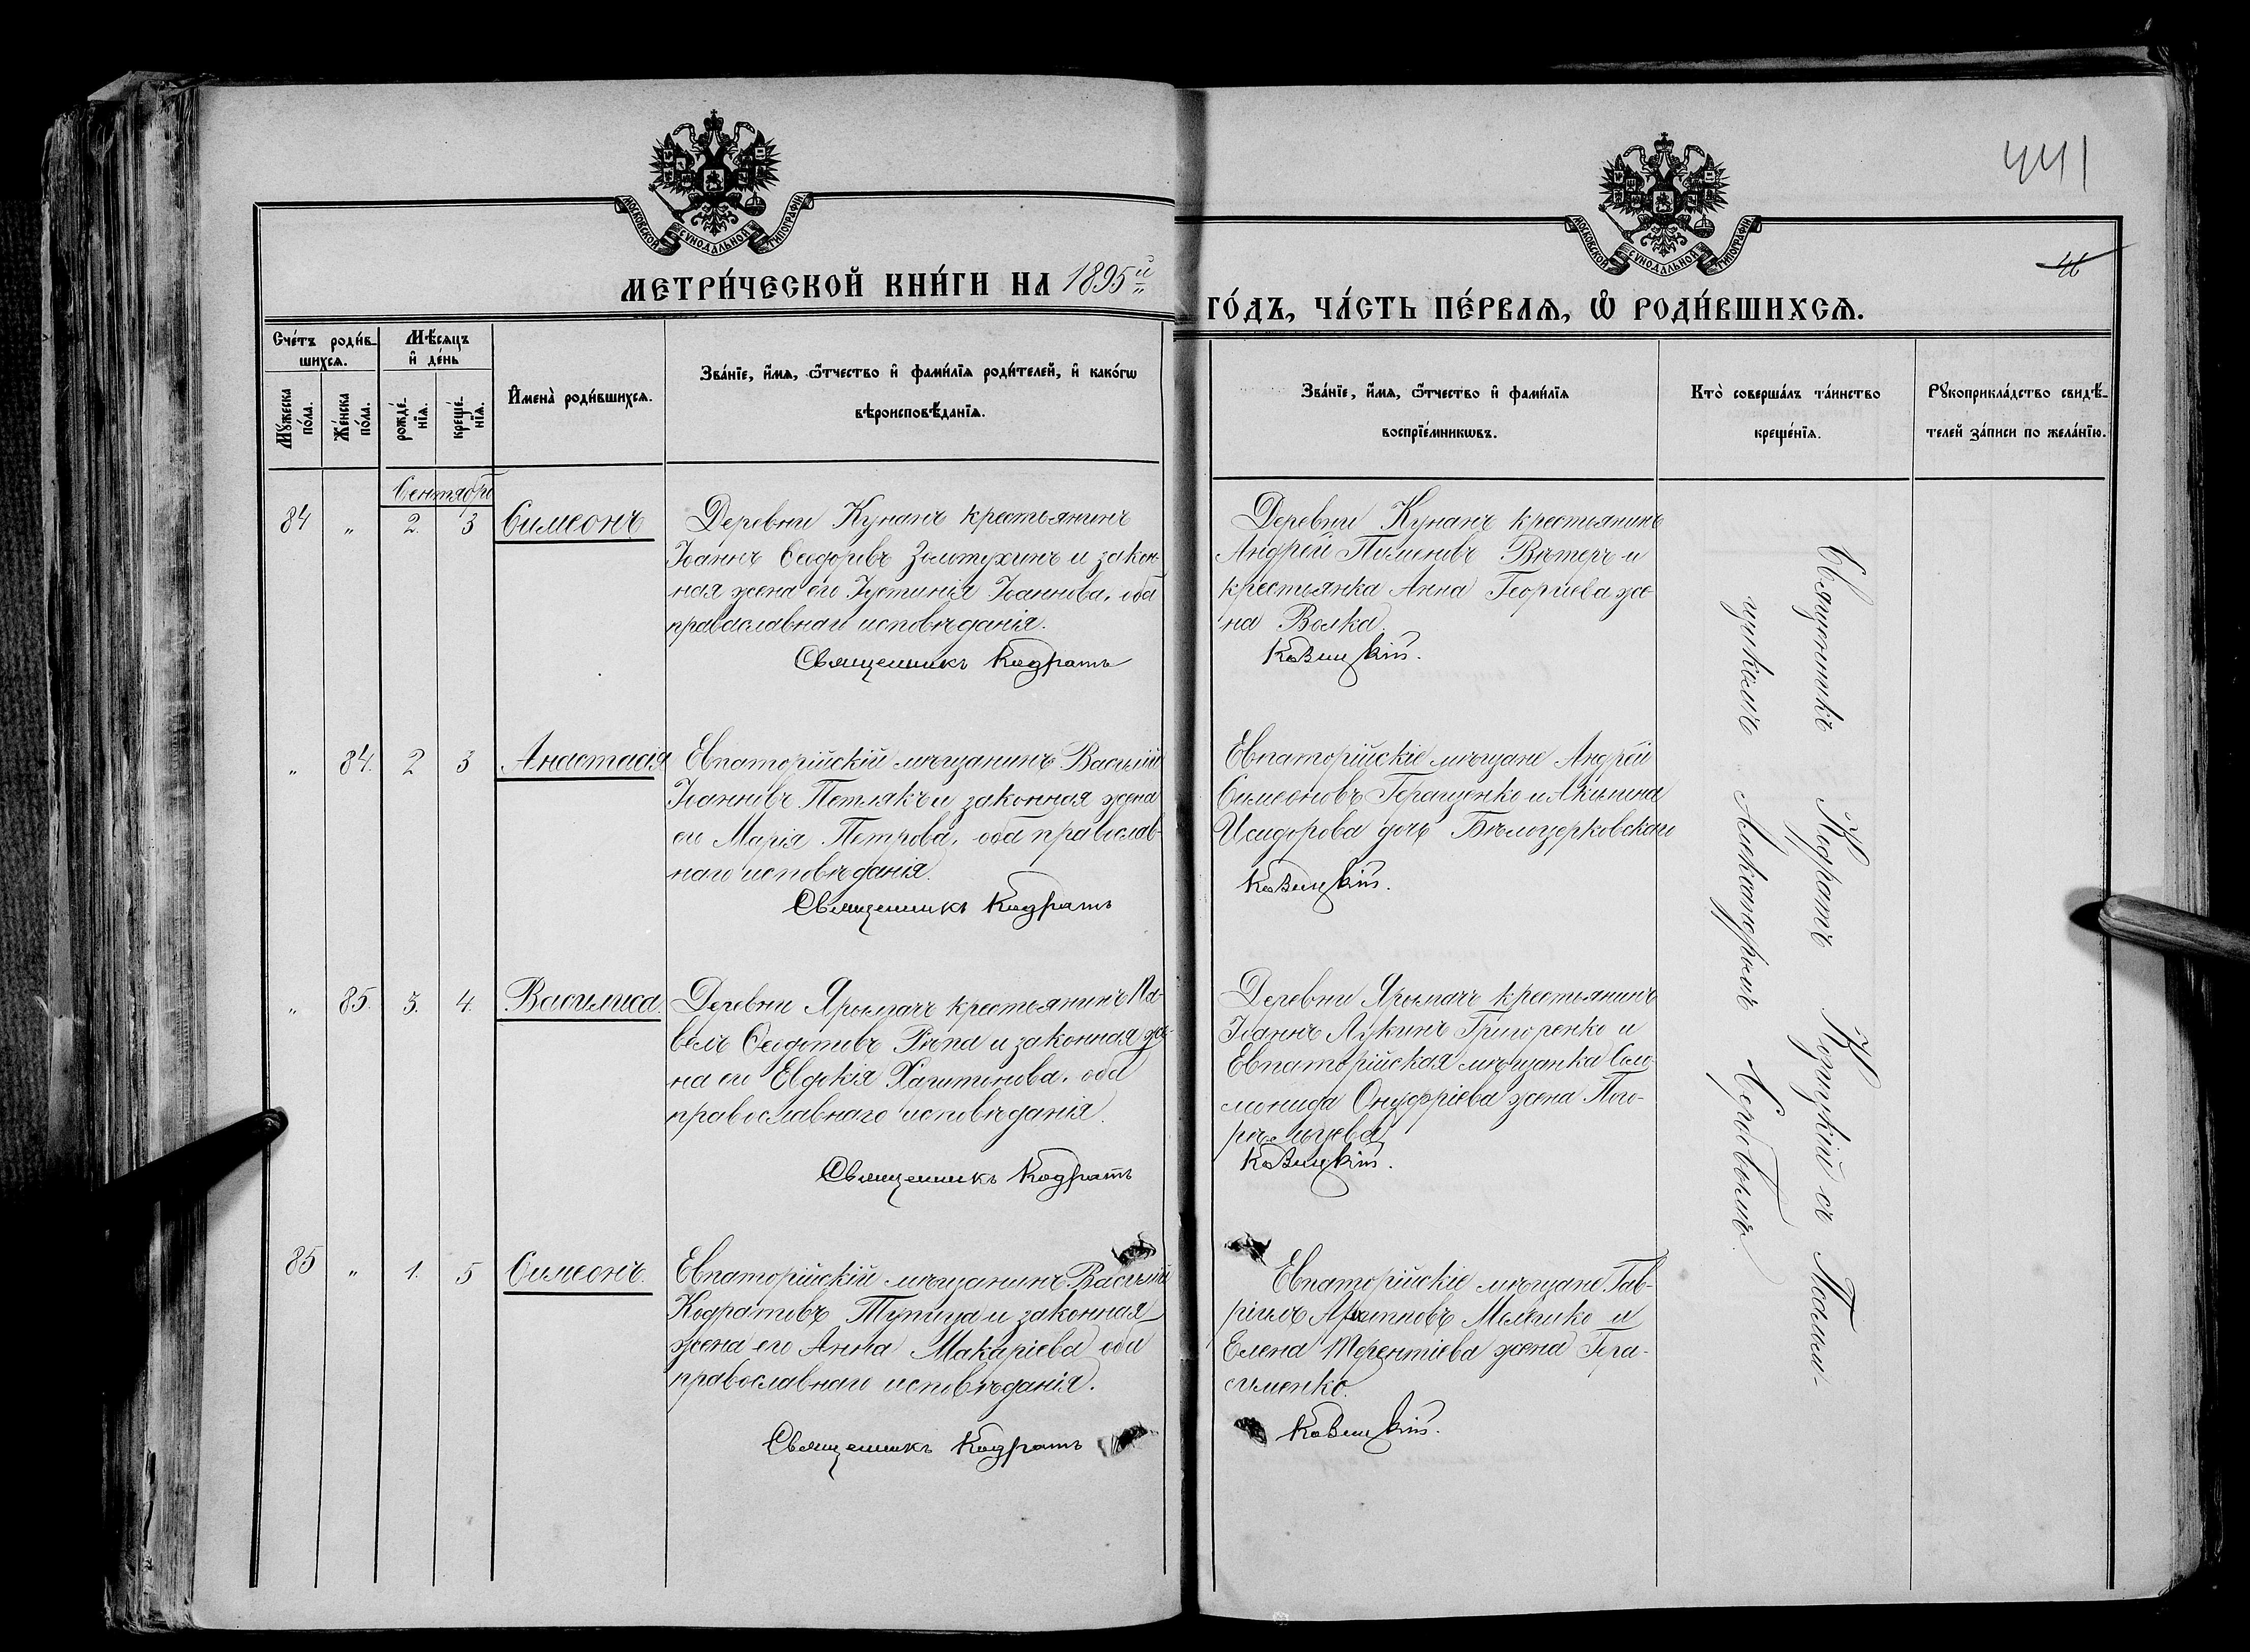 441
46
МОСКОВСКОЙ СУНОДАЛЬНОЙ ТИПОГРАФІИ
МОСКОВСКОЙ СУНОДАЛЬНОЙ ТИПОГРАФІИ
МЕТРИ́ЧЕСКОЙ КНИ́ГИ НА 1895й
ГО́ДЪ, ЧА́СТЬ ПЕ́РВАѦ, Ѡ҆ РОДИ́ВШИХСѦ.
Сче́тъ роди́в-
шихсѧ.
Мѣ́сѧцъ
и҆ де́нь
Мꙋ́жеска
по́ла.
Же́нска
по́ла.
рожде́-
нїѧ.
креще́-
нїѧ.
И҆мена̀ роди́вшихсѧ.
Зва́нїе, и҆́мѧ, ѻ҆́тчество и҆ фами́лїѧ роди́телей, и҆ како́гѡ
вѣроисповѣ́данїѧ.
Зва́нїе, и҆́мѧ, ѻ҆́тчество и҆ фами́лїѧ
воспрїе́мникѡвъ.
Кто̀ соверша́лъ та́инство
креще́нїѧ.
Рꙋкоприкла́дство свидѣ́-
телей за́писи по жела́нїю.
Сентябрь
84 " 2. 3 Симеонъ
Деревни Кунанъ крестьянинъ
Іоаннъ Ѳеодоровъ Золотухинъ и закон-
ная жена его Іустинія Іоаннова, оба
православнаго исповѣданія.
Священникъ Кодратъ
Деревни Кунанъ крестьянинъ
Андрей Пименовъ Вѣтеръ и
крестьянка Анна Георгіева же-
на Волка.
Козицкій.
" 84. 2 3 Анастасія
Евпаторійскій мѣщанинъ Василій
Іоанновъ Петлякъ и законная жена
его Марія Петрова, оба православ-
наго исповѣданія.
Священникъ Кодратъ
Евпаторійскіе мѣщане Андрей
Симеоновъ Геращенко и Акилина
Исидорова дочь Бѣлоцерковскаго
Козицкій.
" 85. 3. 4. Василиса.
Деревни Ярымачъ крестьянинъ Па-
велъ Ѳеодотовъ Рѣпа и законная же-
на его Евдокія Харитонова, оба
православнаго исповѣданія.
Священникъ Кодратъ
Деревни Ярымачъ крестьянинъ
Іоаннъ Лукинъ Григоренко и
Евпаторійская мѣщанка Соло-
монида Онуфріева жена Пого-
рѣльцева
Козицкій.
85 " 1. 5 Симеонъ.
Евпаторійскій мѣщанинъ Василій
Кодратовъ Тупица и законная
жена его Анна Макаріева, оба
православнаго исповѣданія.
Священникъ Кодратъ
Евпаторійскіе мѣщане Гав-
ріилъ Архипповъ Мелешко и
Елена Терентіева жена Гера-
сименко.
Козицкій.
Священникъ Кодратъ Козицкій съ Псалом-
щикомъ Александромъ Сербовымъ.